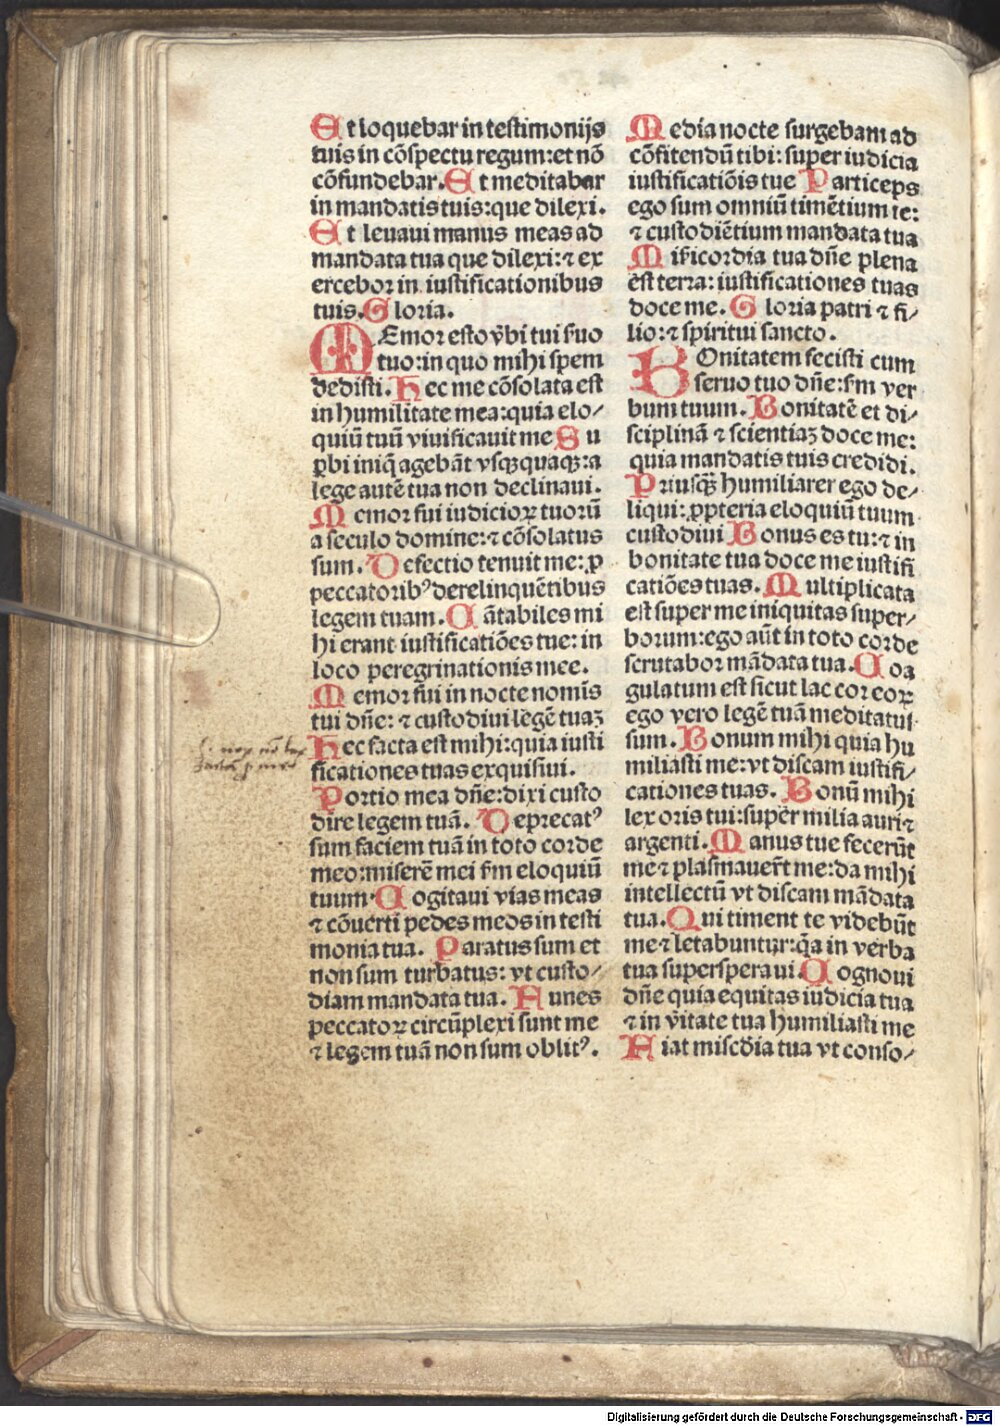 Et loquebar in testimonijs
tuis in cōspectu regum:et nō
cōfundebar. Et meditabar
in mandatis tuis:que dilexi.
Et leuaui manus meas ad
mandata tua que dilexi:⁊ ex
ercebor in iustificationibus
tuis. Gloria.
MEmor esto v̄bi tui s̄uo
tuo:in quo mihi spem
dedisti. Hec me cōsolata est
in humilitate mea:quia elo/
quiū tuū viuificauit me Su
ꝑbi iniq̄ agebāt vsqꝫquaqꝫ:a
lege autē tua non declinaui.
Memor fui iudicioꝝ tuorū
a seculo domine:⁊ cōsolatus
sum. Defectio tenuit me:ꝓ
peccatorib⁹ derelinquētibus
legem tuam. Cātabiles mi
hi erant iustificatiōes tue: in
loco peregrinationis mee.
Memor fui in nocte nomīs
tui dn̄e: ⁊ custodiui legē tuaꝫ
Hec facta est mihi:quia iusti
ficationes tuas exquisiui.
Portio mea dn̄e:dixi custo
dire legem tuā. Deprecat⁹
sum faciem tuā in toto corde
meo:miserē mei s̄m eloquiū
tuum. Cogitaui vias meas
⁊ cōuerti pedes meos in testi
monia tua. Paratus sum et
non sum turbatus: vt custo/
diam mandata tua. Funes
peccatoꝝ circūplexi sunt me
⁊ legem tuā non sum oblit⁹.
Media nocte surgebam ad
cōfitendū tibi: super iudicia
iustificatiōis tue Particeps
ego sum omniū timētium te:
⁊ custodiētium mandata tua
Misericordia tua dn̄e plena
est terra: iustificationes tuas
doce me. Gloria patri ⁊ fi/
lio:⁊ spiritui sancto.
BOnitatem fecisti cum
seruo tuo dn̄e:s̄m ver
bum tuum. Bonitatē et di/
sciplinā ⁊ scientiaꝫ doce me:
quia mandatis tuis credidi.
Priusqꝫ humiliarer ego de/
liqui: ꝓpterea eloquiū tuum
custodiui Bonus es tu:⁊ in
bonitate tua doce me iustifi
catiōes tuas. Multiplicata
est super me iniquitas super/
borum:ego aūt in toto corde
scrutabor mādata tua. Coa
gulatum est sicut lac cor eoꝝ
ego vero legē tuā meditatus
sum. Bonum mihi quia hu
miliasti me:vt discam iustifi/
cationes tuas. Bonū mihi
lex oris tui:super milia auri ⁊
argenti. Manus tue fecerūt
me ⁊ plasmauer̄t me:da mihi
intellectū vt discam mādata
tua. Qui timent te videbūt
me ⁊ letabuntur:q̄a in verba
tua supersperaui. Cognoui
dn̄e quia equitas iudicia tua
⁊ in v̄itate tua humiliasti me
Fiat misc̄dia tua vt conso/
Digitalisierung gefördert durch die Deutsche Forschungsgemeinschaft - DFG